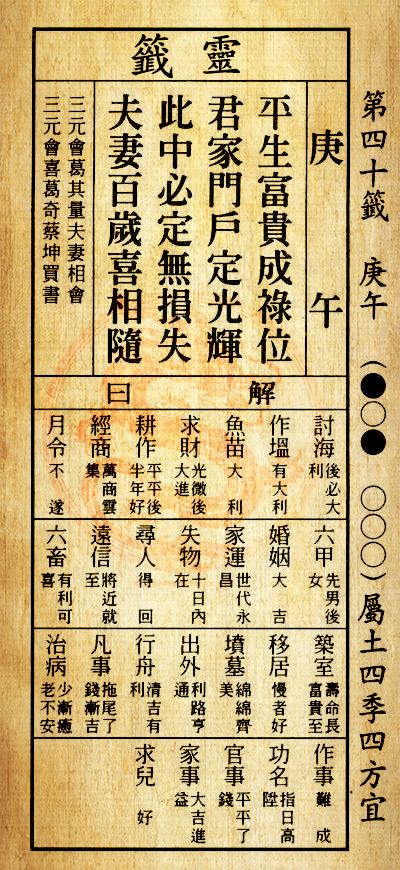 第四十籤 庚午 (●○● ○○○) 屬土四季四方宜
靈籤
庚午
平生富貴成祿位
君家門戶定光輝
此中必定無損失
夫妻百歲喜相隨
三元會葛其量夫妻相會
三元會喜葛奇蔡坤買書
解曰
討海 後必大利
作塭 有大利
魚苗 大利
求財 光微後大進
耕作 平平後半年好
經商 萬商雲集
月令 不遂
六甲 先男後女
婚姻 大吉
家運 世代永昌
失物 十日內在
尋人 得回
遠信 將近就至
六畜 有利可喜
築室 壽命長富貴至
移居 慢者好
墳墓 綿綿齊美
出外 利路亨通
行舟 清吉有利
凡事 拖尾了錢漸吉
治病 少漸癒老不安
作事 難成
功名 指日高陞
官事 平平了錢
家事 大吉進益
求兒 好